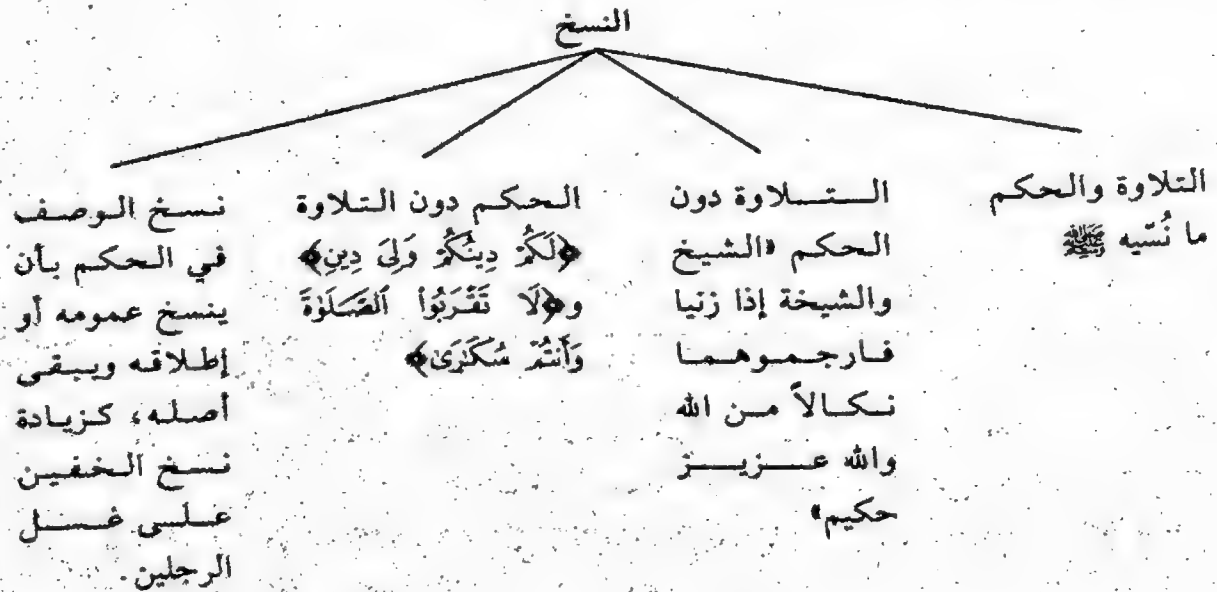 النسخ
التلاوة والحكم
ما نُسّيه ﷺ
التلاوة دون
الحكم «الشيخ
والشيخة إذا زنيا
فارجموهما
نكالاً من الله
والله عزيز
حكيم»
الحكم دون التلاوة
﴿لَكُمْ دِينُكُمْ وَلِيَ دِينِ﴾
و﴿لَا تَقْرَبُوا الصَّلَوٰةَ
وَأَنتُمْ سُكَٰرَىٰ﴾
نسخ الوصف
في الحكم بأن
ينسخ عمومه أو
إطلاقه ويبقى
أصله، كزيادة
نسخ الخفين
على غسل
الرجلين.